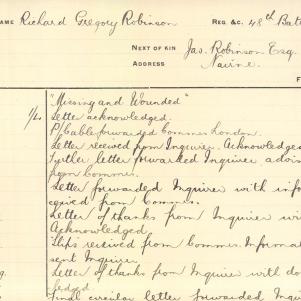 NAME Richard Gregory Robinson REG. &C. 48th Batt
NEXT OF KIN Jas. Robinson Esq.
ADDRESS Nairne.
"Missing and Wounded"
Letter acknowledged.
P/Cable forwarded Commrs. London.
Letter received from Inquirer. Acknowledged
Further letter forwarded Inquirer advis
from Commrs.
Letter forwarded Inquirer with info
copied from Commrs.
Letter of thanks from Inquirer wi
Acknowledged.
Slips received from Commrs. Informat
sent Inquirer.
Letter of thanks from Inquirer with do
Final circular letter forwarded Inqui